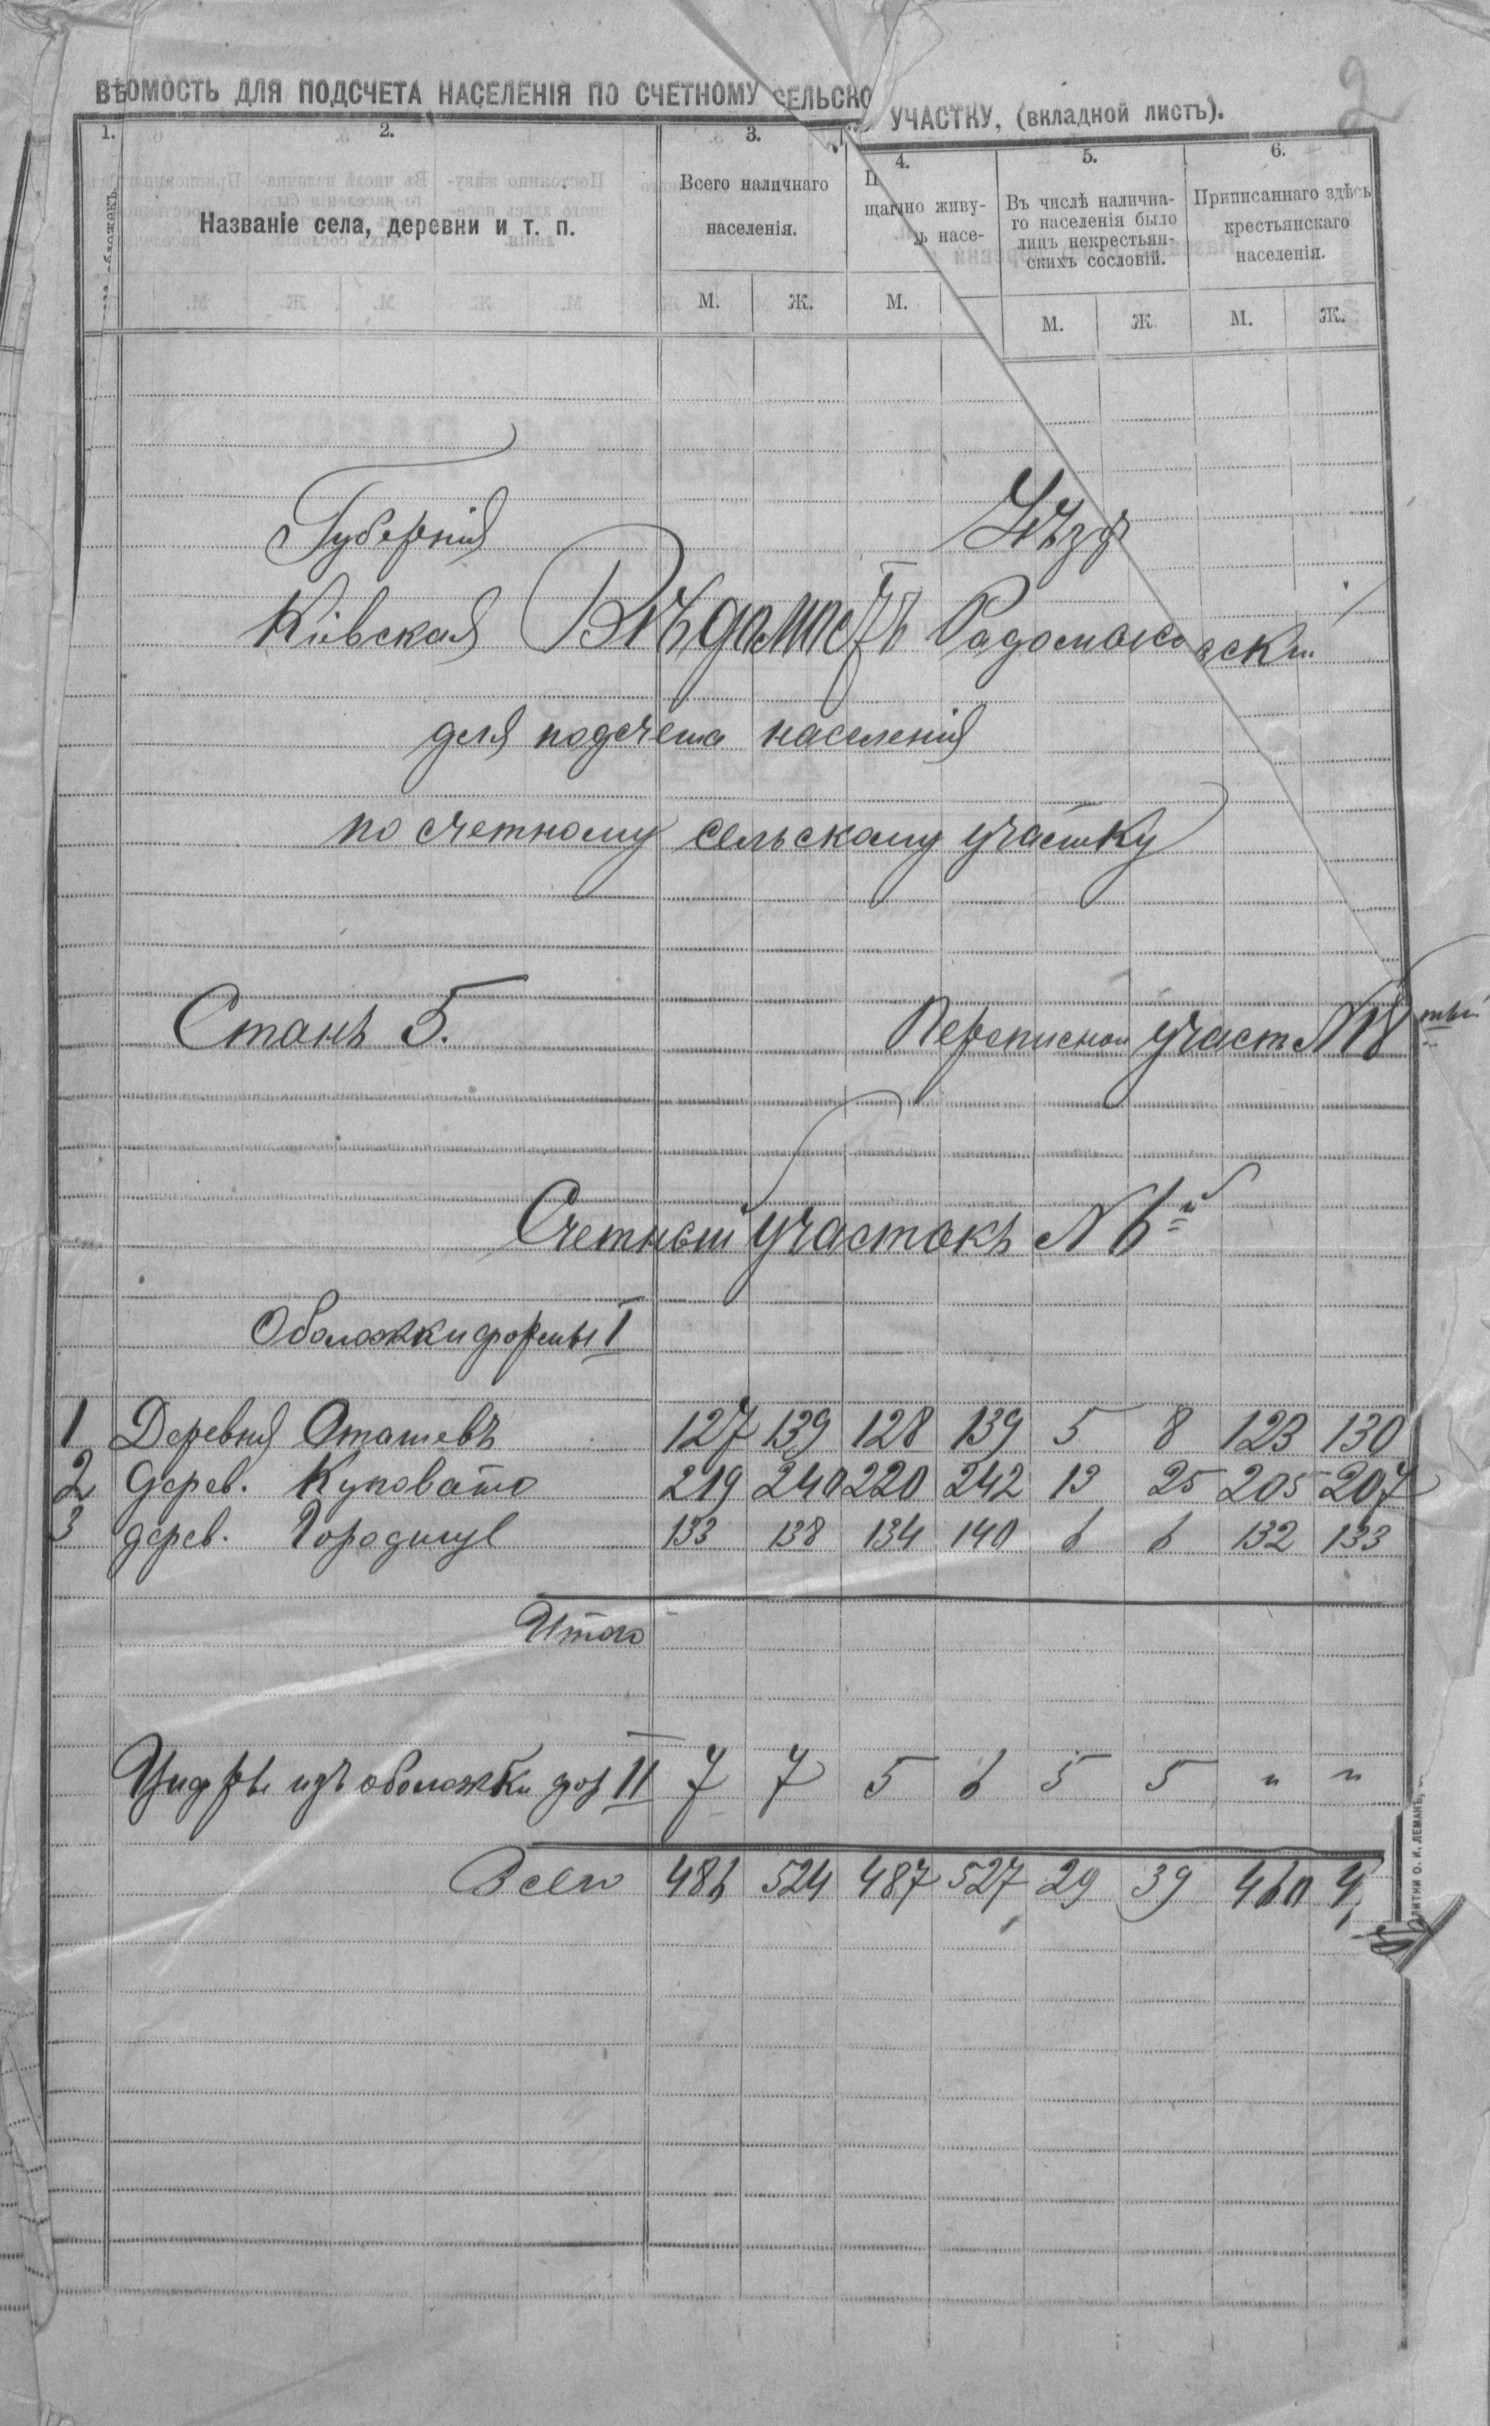 2
ВѢОМОСТЬ ДЛЯ ПОДСЧЕТА НАСЕЛЕНІЯ ПО СЧЕТНОМУ СЕЛЬСКО УЧАСТКУ, (вкладной листъ).
1. 2. 3. 4. 5. 6.
Названіе села, деревни и т. п.
Всего наличнаго
населенія.
П
щанно живу-
ъ насе-
Въ числѣ налична-
го населенія было
лицъ некрестьян-
скихъ сословій.
Приписаннаго здѣсь
крестьянскаго
населенія.
М. Ж. М. М. Ж М. Ж.
Губернія Уѣзд
Кіевская Вѣдомость Радомысски
для подсчета населенія
по счетному сельскому участку
Станъ 5. Переписной участ N 18 тый
Счетный участокъ N 6й
Обложки формы I
1 Деревня Оташевъ 127 139 128 139 5 8 123 130
2 дерев. Куповато 219 240 220 242 13 25 205 207
3 дерев. Городище 133 138 134 140 6 6 132 133
Итого
Цифры изъ обложки фор II 7 7 5 6 5 5 " "
Всего 486 524 487 527 29 39 460 4
ЛИТНИ О. И. ЛЕМАНЪ,